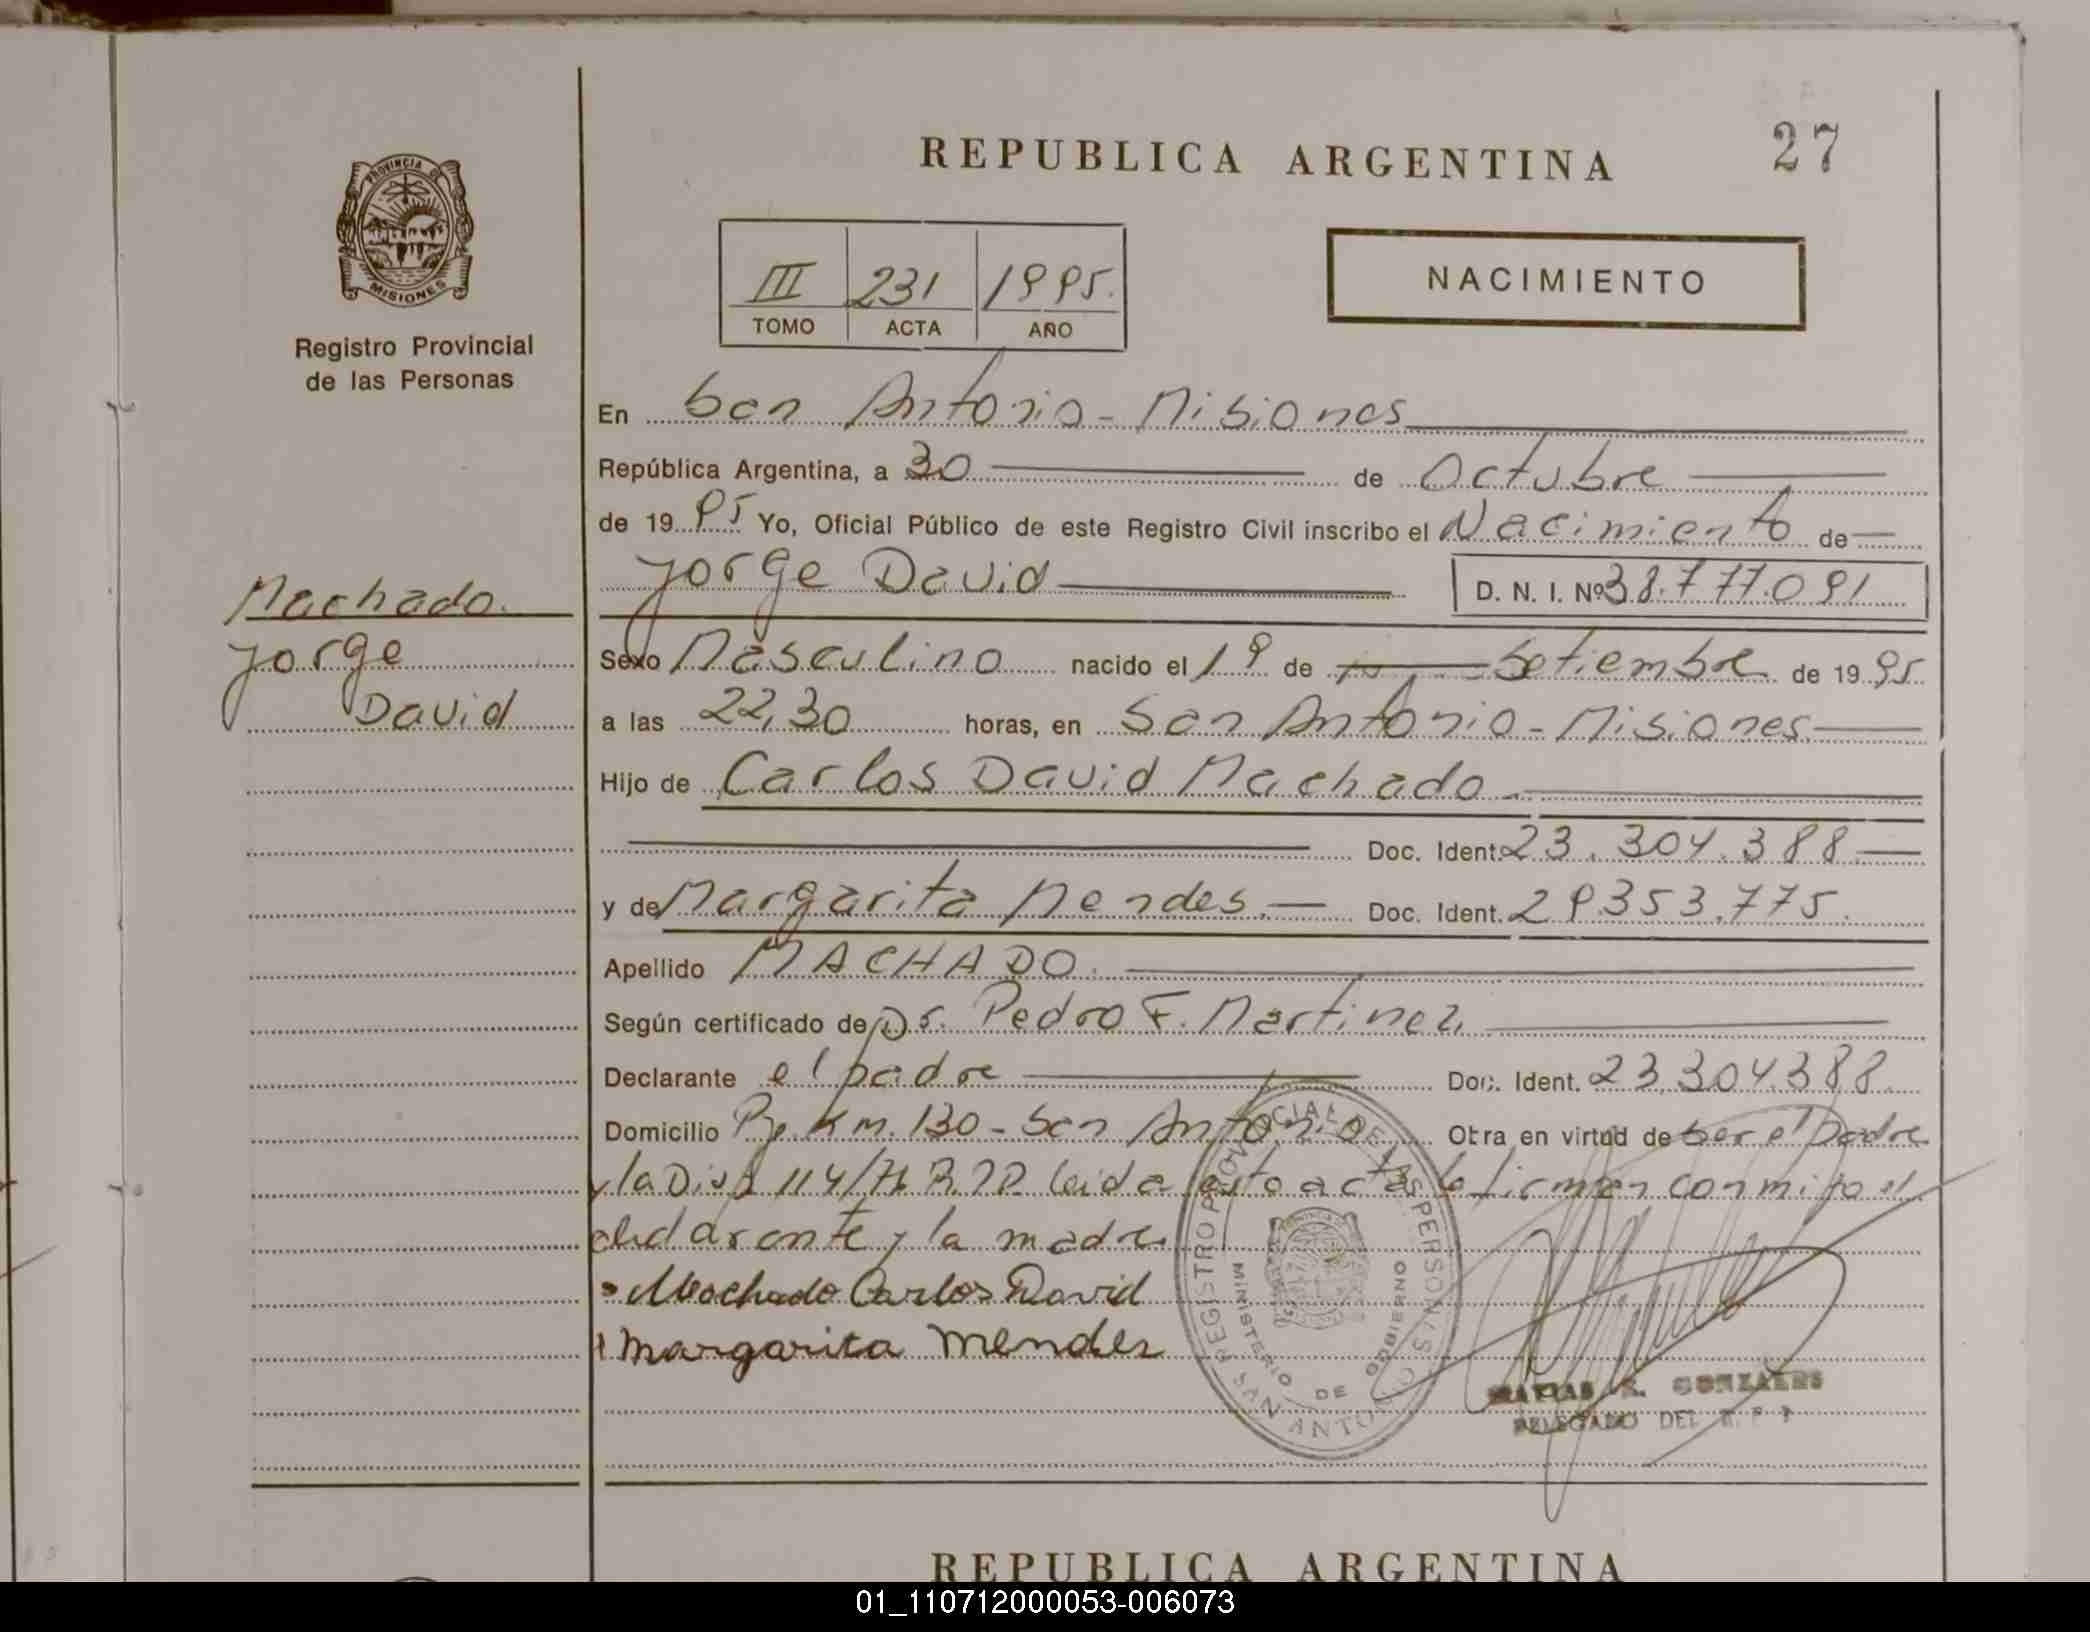 REPUBLICA ARGENTINA
27
PROVINCIA DE
MISIONES
Registro Provincial
de las Personas
III 231 1995.
TOMO ACTA AÑO
NACIMIENTO
En San Antonio - Misiones
República Argentina, a 30 de Octubre
de 1995 Yo, Oficial Público de este Registro Civil inscribo el Nacimiento de
Jorge David
D. N. I. Nº 38.777.091
Machado.
Jorge
David
Sexo Masculino nacido el 19 de Setiembre de 1995
a las 22,30 horas, en San Antonio - Misiones.
Hijo de Carlos David Machado.
Doc. Ident. 23.304.388.
y de Margarita Mendes. Doc. Ident. 29.353.775.
Apellido MACHADO.
Según certificado de Dr. Pedro F. Martinez,
Declarante el padre Doc. Ident. 23.304.388.
Domicilio Km. 130 - San Antonio Obra en virtud de ser el padre
y la Disp 114/ leida esta acta la firman conmigo el
declarante y la madre
Machado Carlos David
Margarita Mendez
REGISTRO PROVINCIAL DE LAS PERSONAS
MINISTERIO DE GOBIERNO
SAN ANTONIO
MATIAS R. GONZALES
DELEGADO DEL R. P. P.
REPUBLICA ARGENTINA
01_110712000053-006073